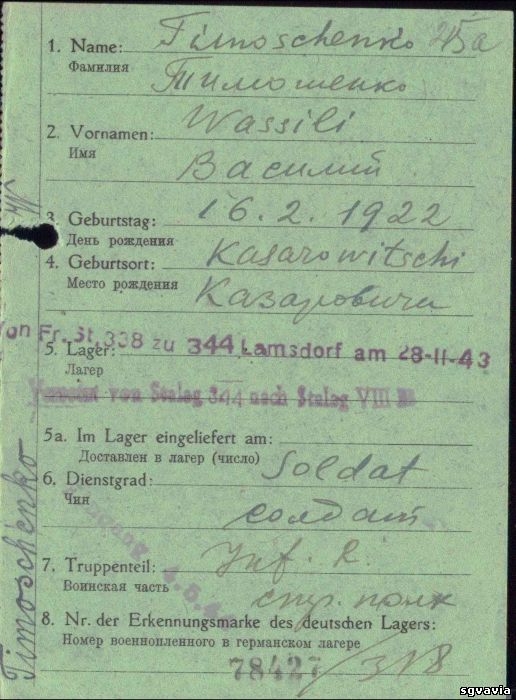 1. Name: Timoschenko
Фамилия
Тимошенко
2. Vornamen: Wassili
Имя
Василий
3. Geburtstag: 16. 2. 1922
День рождения
4. Geburtsort: Kasarowitschi
Место рождения
Казаровичи
von Fr. St. 338 zu 344 Lamsdorf am 28-11-43
5. Lager:
Лагер
von Stalag 344 nach Stalag VIII
5a. Im Lager eingeliefert am:
Доставлен в лагер (число)
6. Dienstgrad: Soldat
Чин
солдат
7. Truppenteil: Inf. R.
Воинская часть
стр. полк
8. Nr. der Erkennungsmarke des deutschen Lagers:
Номер военнопленного в германском лагере
78427 / 318
Timoschenko
sgvavia